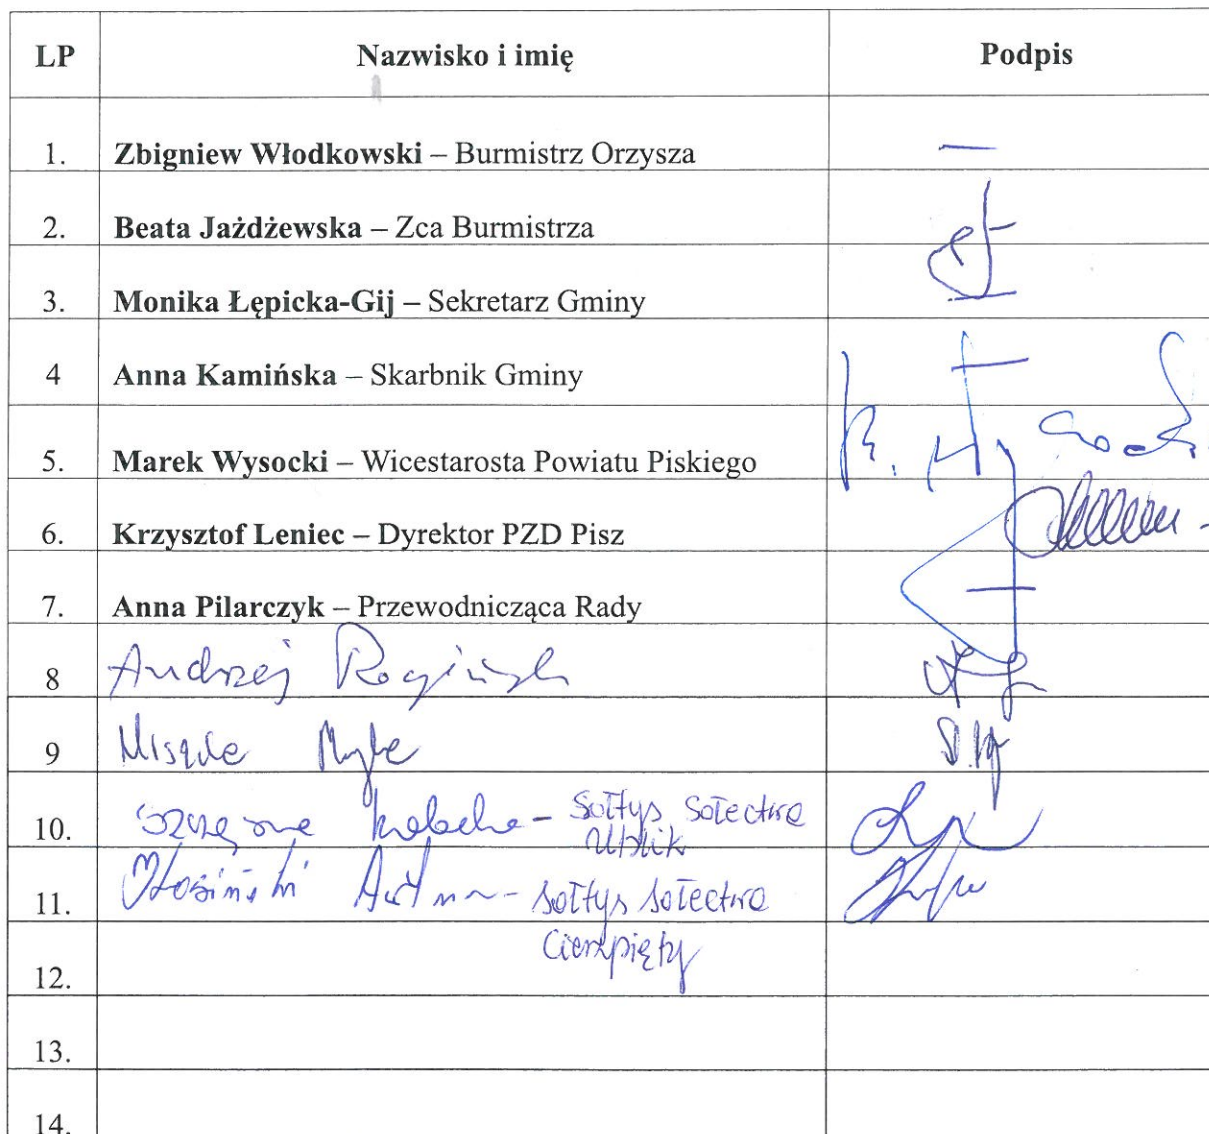 LP Nazwisko i imię Podpis
1. Zbigniew Włodkowski – Burmistrz Orzysza —
2. Beata Jażdżewska – Zca Burmistrza
3. Monika Łępicka-Gij – Sekretarz Gminy —
4 Anna Kamińska – Skarbnik Gminy —
5. Marek Wysocki – Wicestarosta Powiatu Piskiego
6. Krzysztof Leniec – Dyrektor PZD Pisz
7. Anna Pilarczyk – Przewodnicząca Rady —
8 Andrzej
9
10. – Sołtys Sołectwa
Ublik
11. – sołtys sołectwa
Cierzpięty
12.
13.
14.